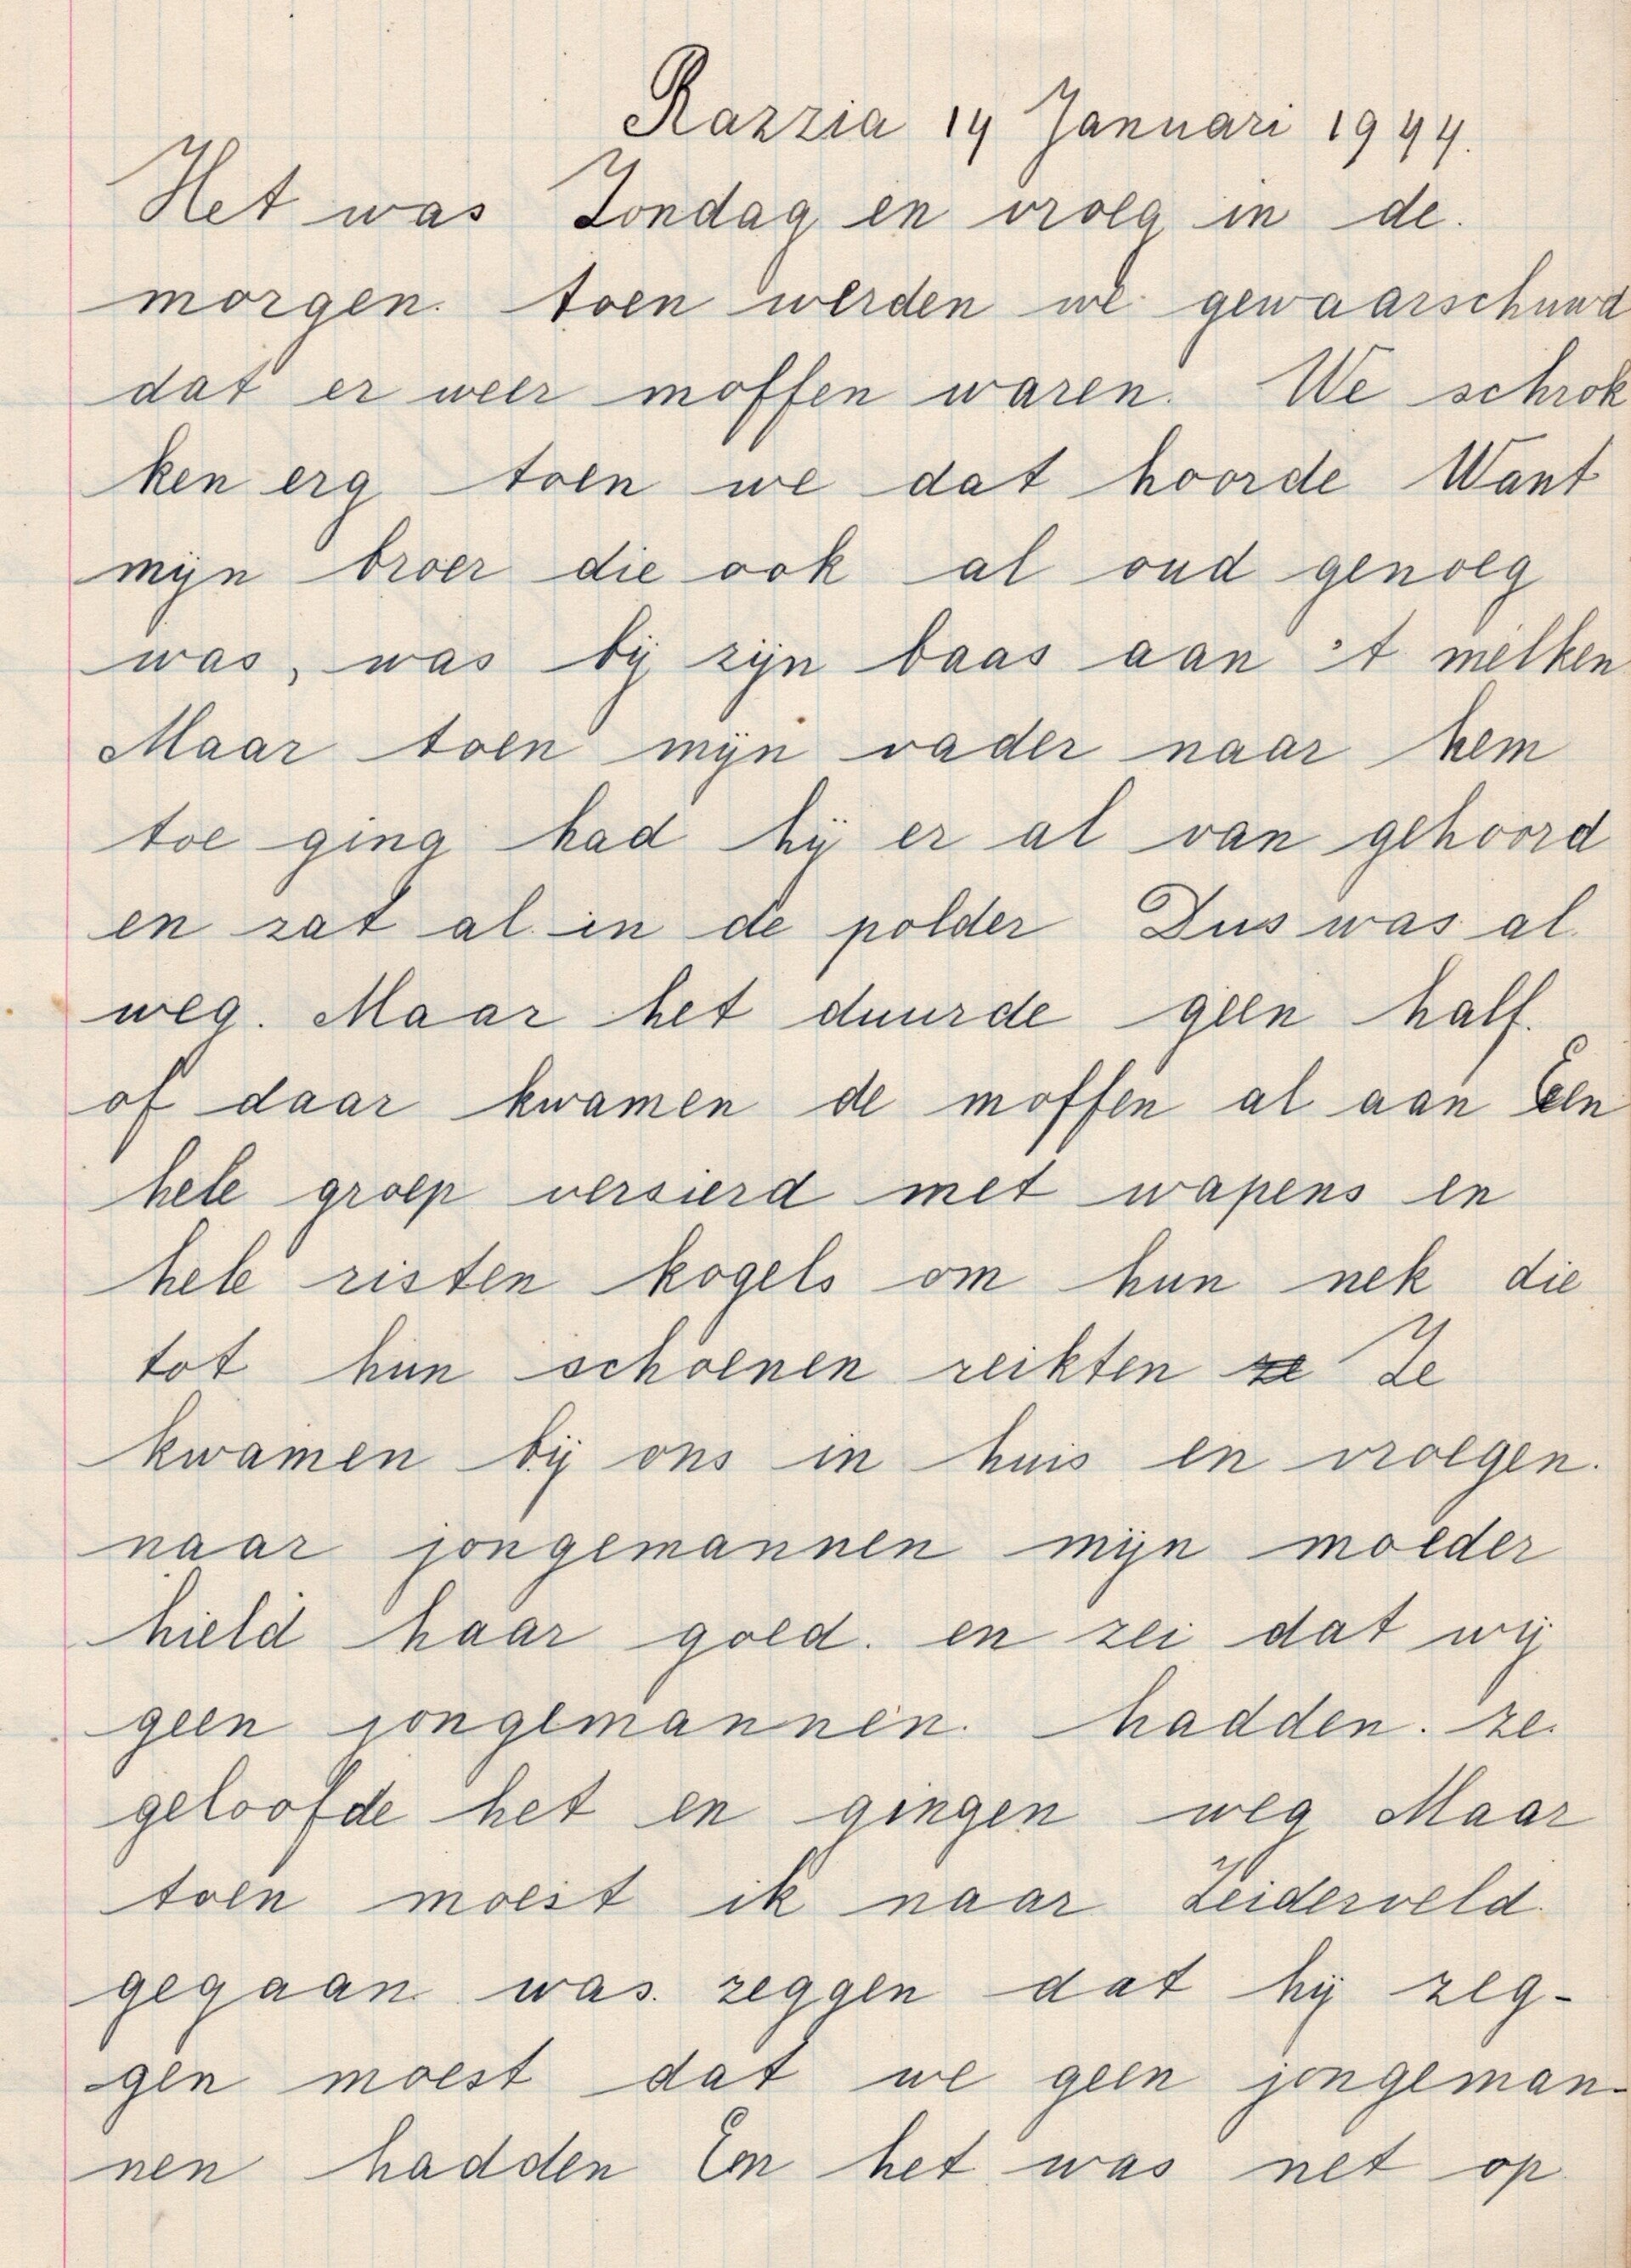 Razzia 14 Januari 1944.
Het was Zondag en vroeg in de.
morgen. toen werden we gewaarschuwd
dat er weer moffen waren. We schrok
ken erg toen we dat hoorde Want
mijn broer die ook al oud genoeg
was, was bij zijn baas aan 't melken
Maar toen mijn vader naar hem
toe ging had hij er al van gehoord
en zat al in de polder Dus was al
weg. Maar het duurde geen half.
of daar kwamen de moffen al aan Een
hele groep versierd met wapens en
hele risten kogels om hun nek die
tot hun schoenen reikten ze Ze
kwamen bij ons in huis en vroegen.
naar jongemannen mijn moeder
hield haar goed. en zei dat wij
geen jongemannen. hadden. ze.
geloofde het en gingen weg Maar
toen moest ik naar Zeiderveld.
gegaan was zeggen dat hij zeg-
gen moest dat we geen jongeman-
nen hadden En het was net op